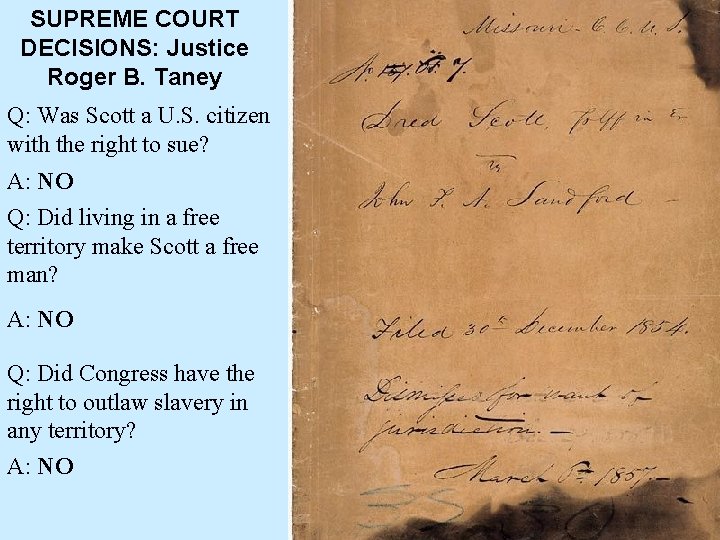 SUPREME COURT
DECISIONS: Justice
Roger B. Taney
Q: Was Scott a U.S. citizen
with the right to sue?
A: NO
Q: Did living in a free
territory make Scott a free
man?
A: NO
Q: Did Congress have the
right to outlaw slavery in
any territory?
A: NO
Missouri - C. C. U. S.
No. 7.
Dred Scott, Plff in Er
vs
John F. A. Sandford -
Filed 30th December 1854.
Dismissed for want of
jurisdiction. -
March 6th 1857. -